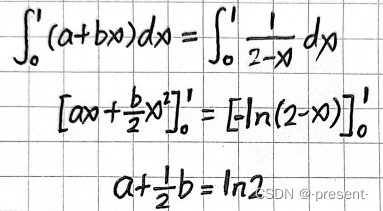 ∫₀¹(a+bx)dx = ∫₀¹ 1/(2-x) dx
[ax+b/2x²]₀¹ = [-ln(2-x)]₀¹
a+1/2b=ln2
CSDN @·present·